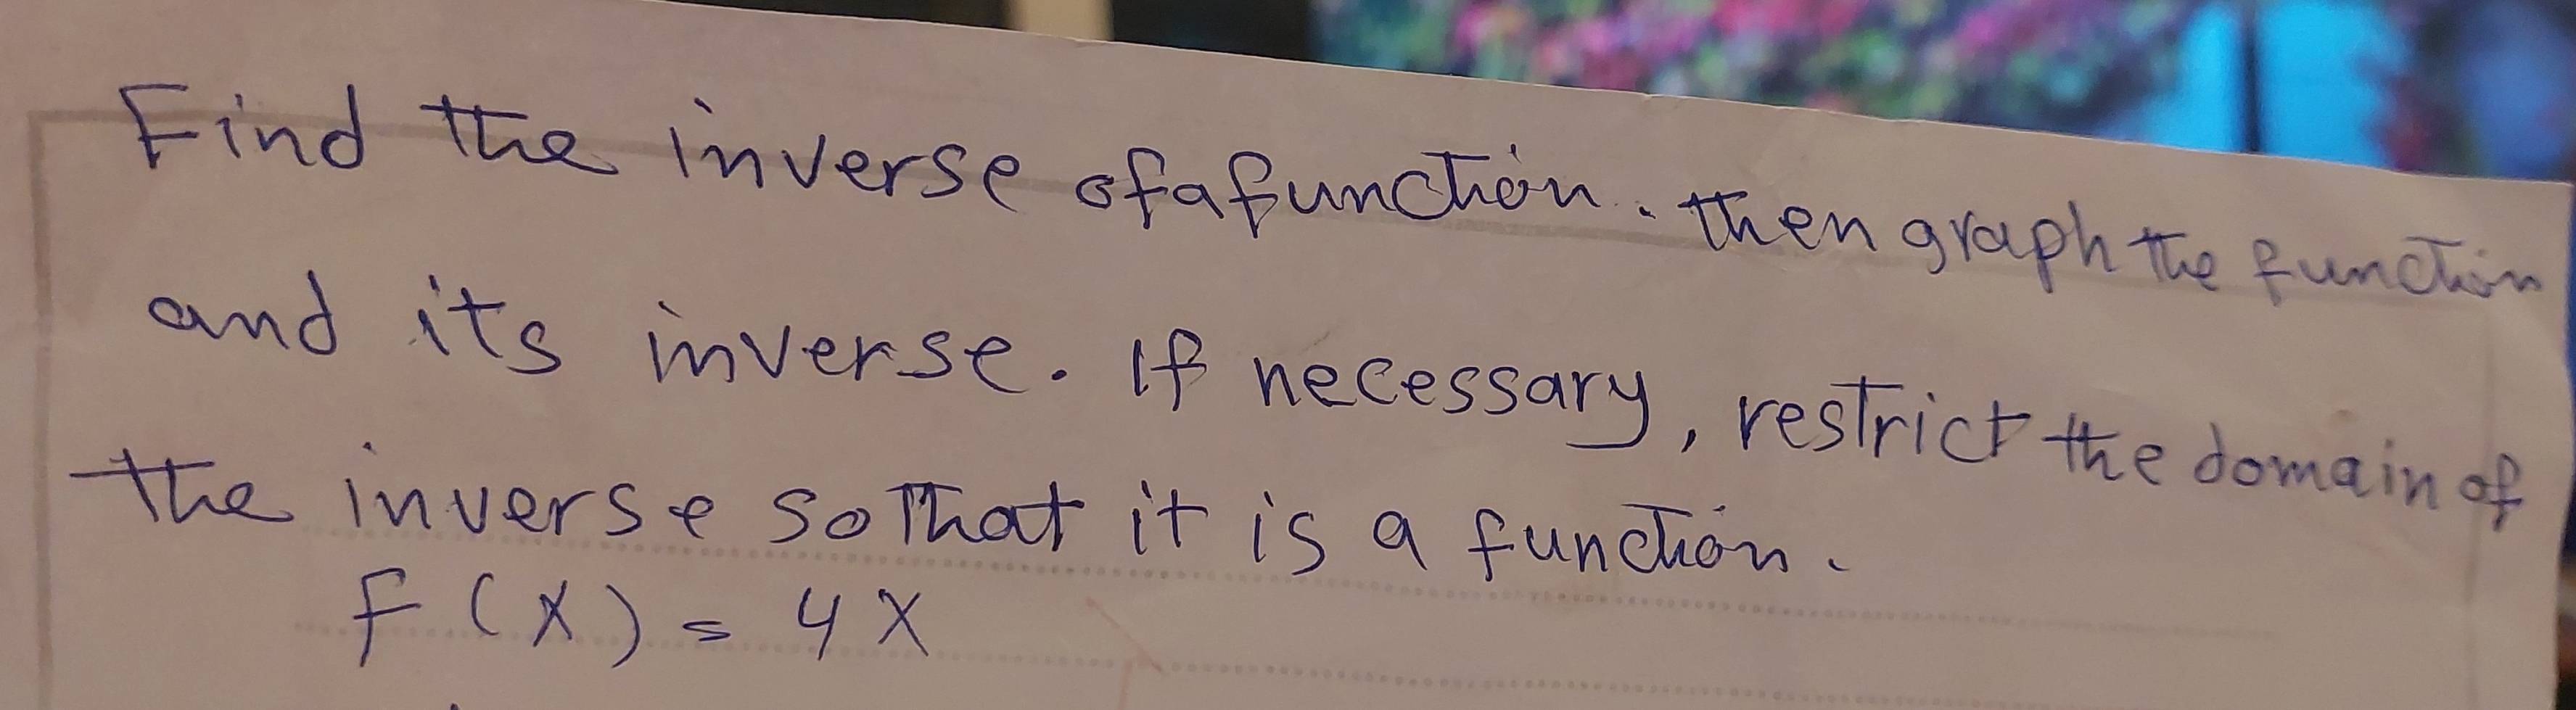 Find the inverse of a function. then graph the function
and its inverse. If necessary, restrict the domain of
the inverse so that it is a function.
f(x) = 4x